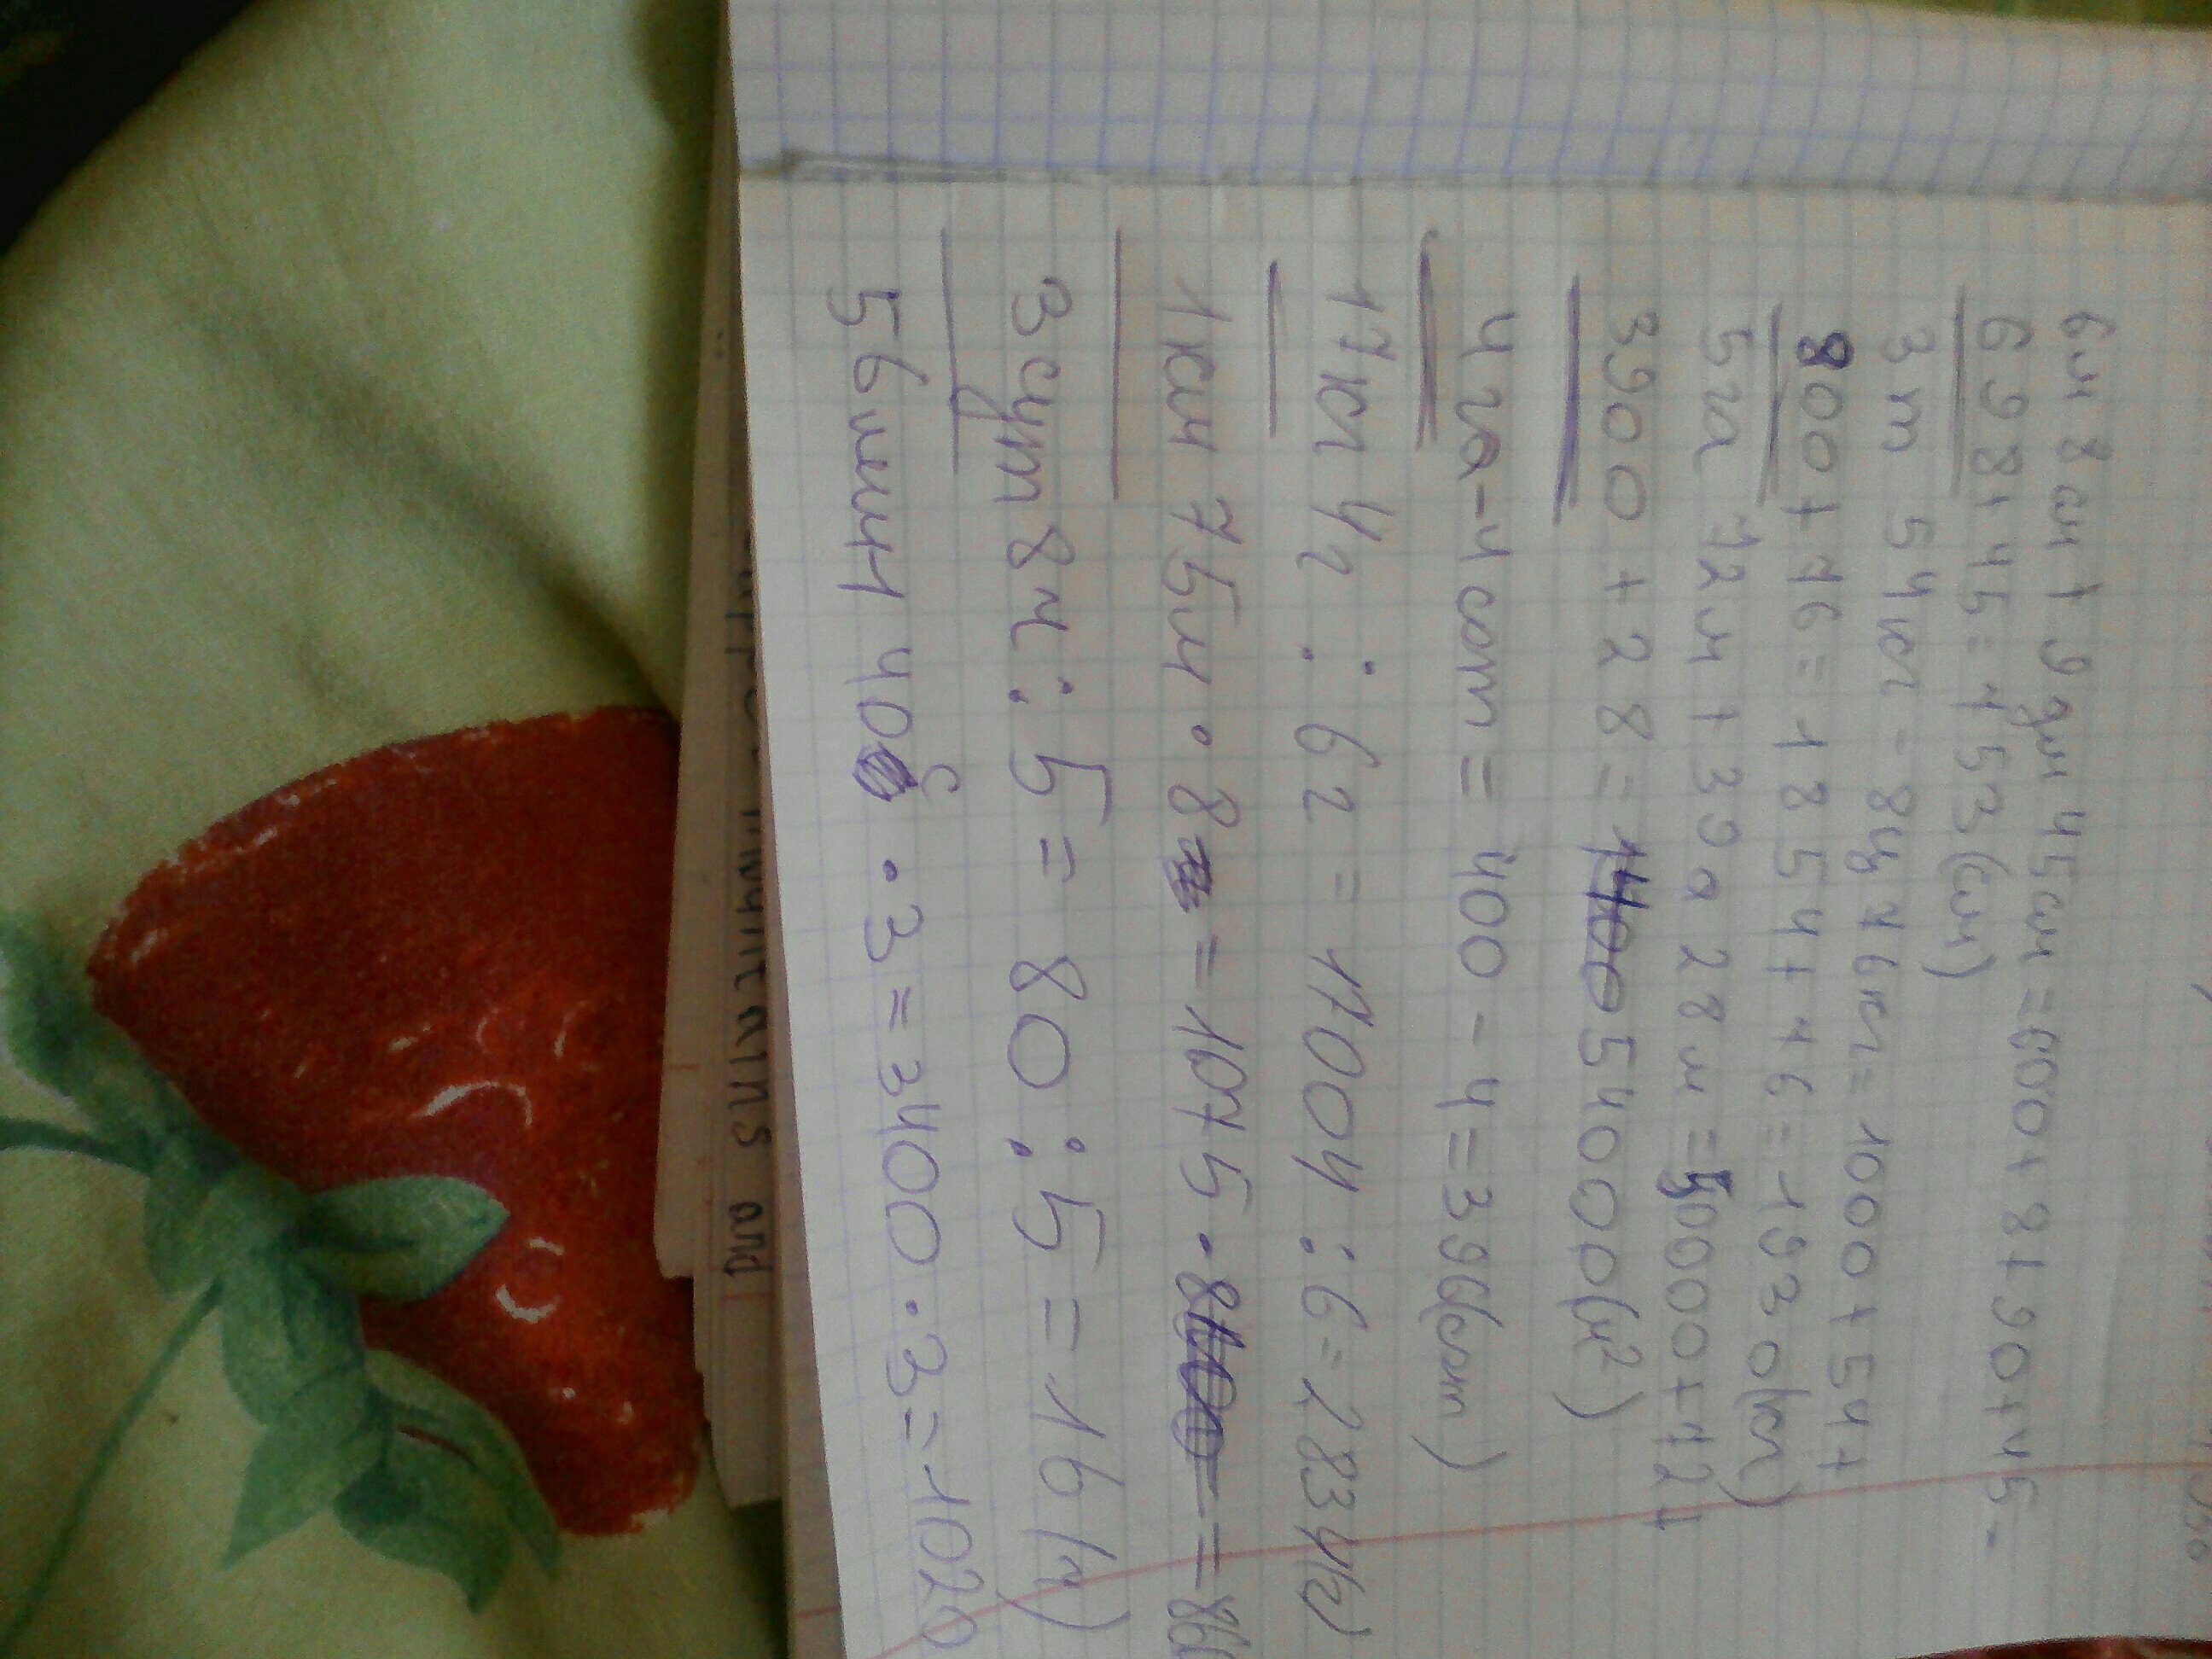 6м 8см + 9дм 45см = 600+8+90+45=
698+45=153(см)
3т 54кг - 8ц 16кг = 1000+54+
800+16=1854+16=1930(кг)
5га 12м + 39а 28м = 50000+12+
3900+28= 54000(м²)
4га-4сот=400-4=396(сот)
17кг 4г : 6г = 17004:6=2834(г)
1км 75м · 8 = 1075·8 = 860
3сут 8ч : 5 = 80:5=16(ч)
56мин 40с · 3=3400·3=1020
and